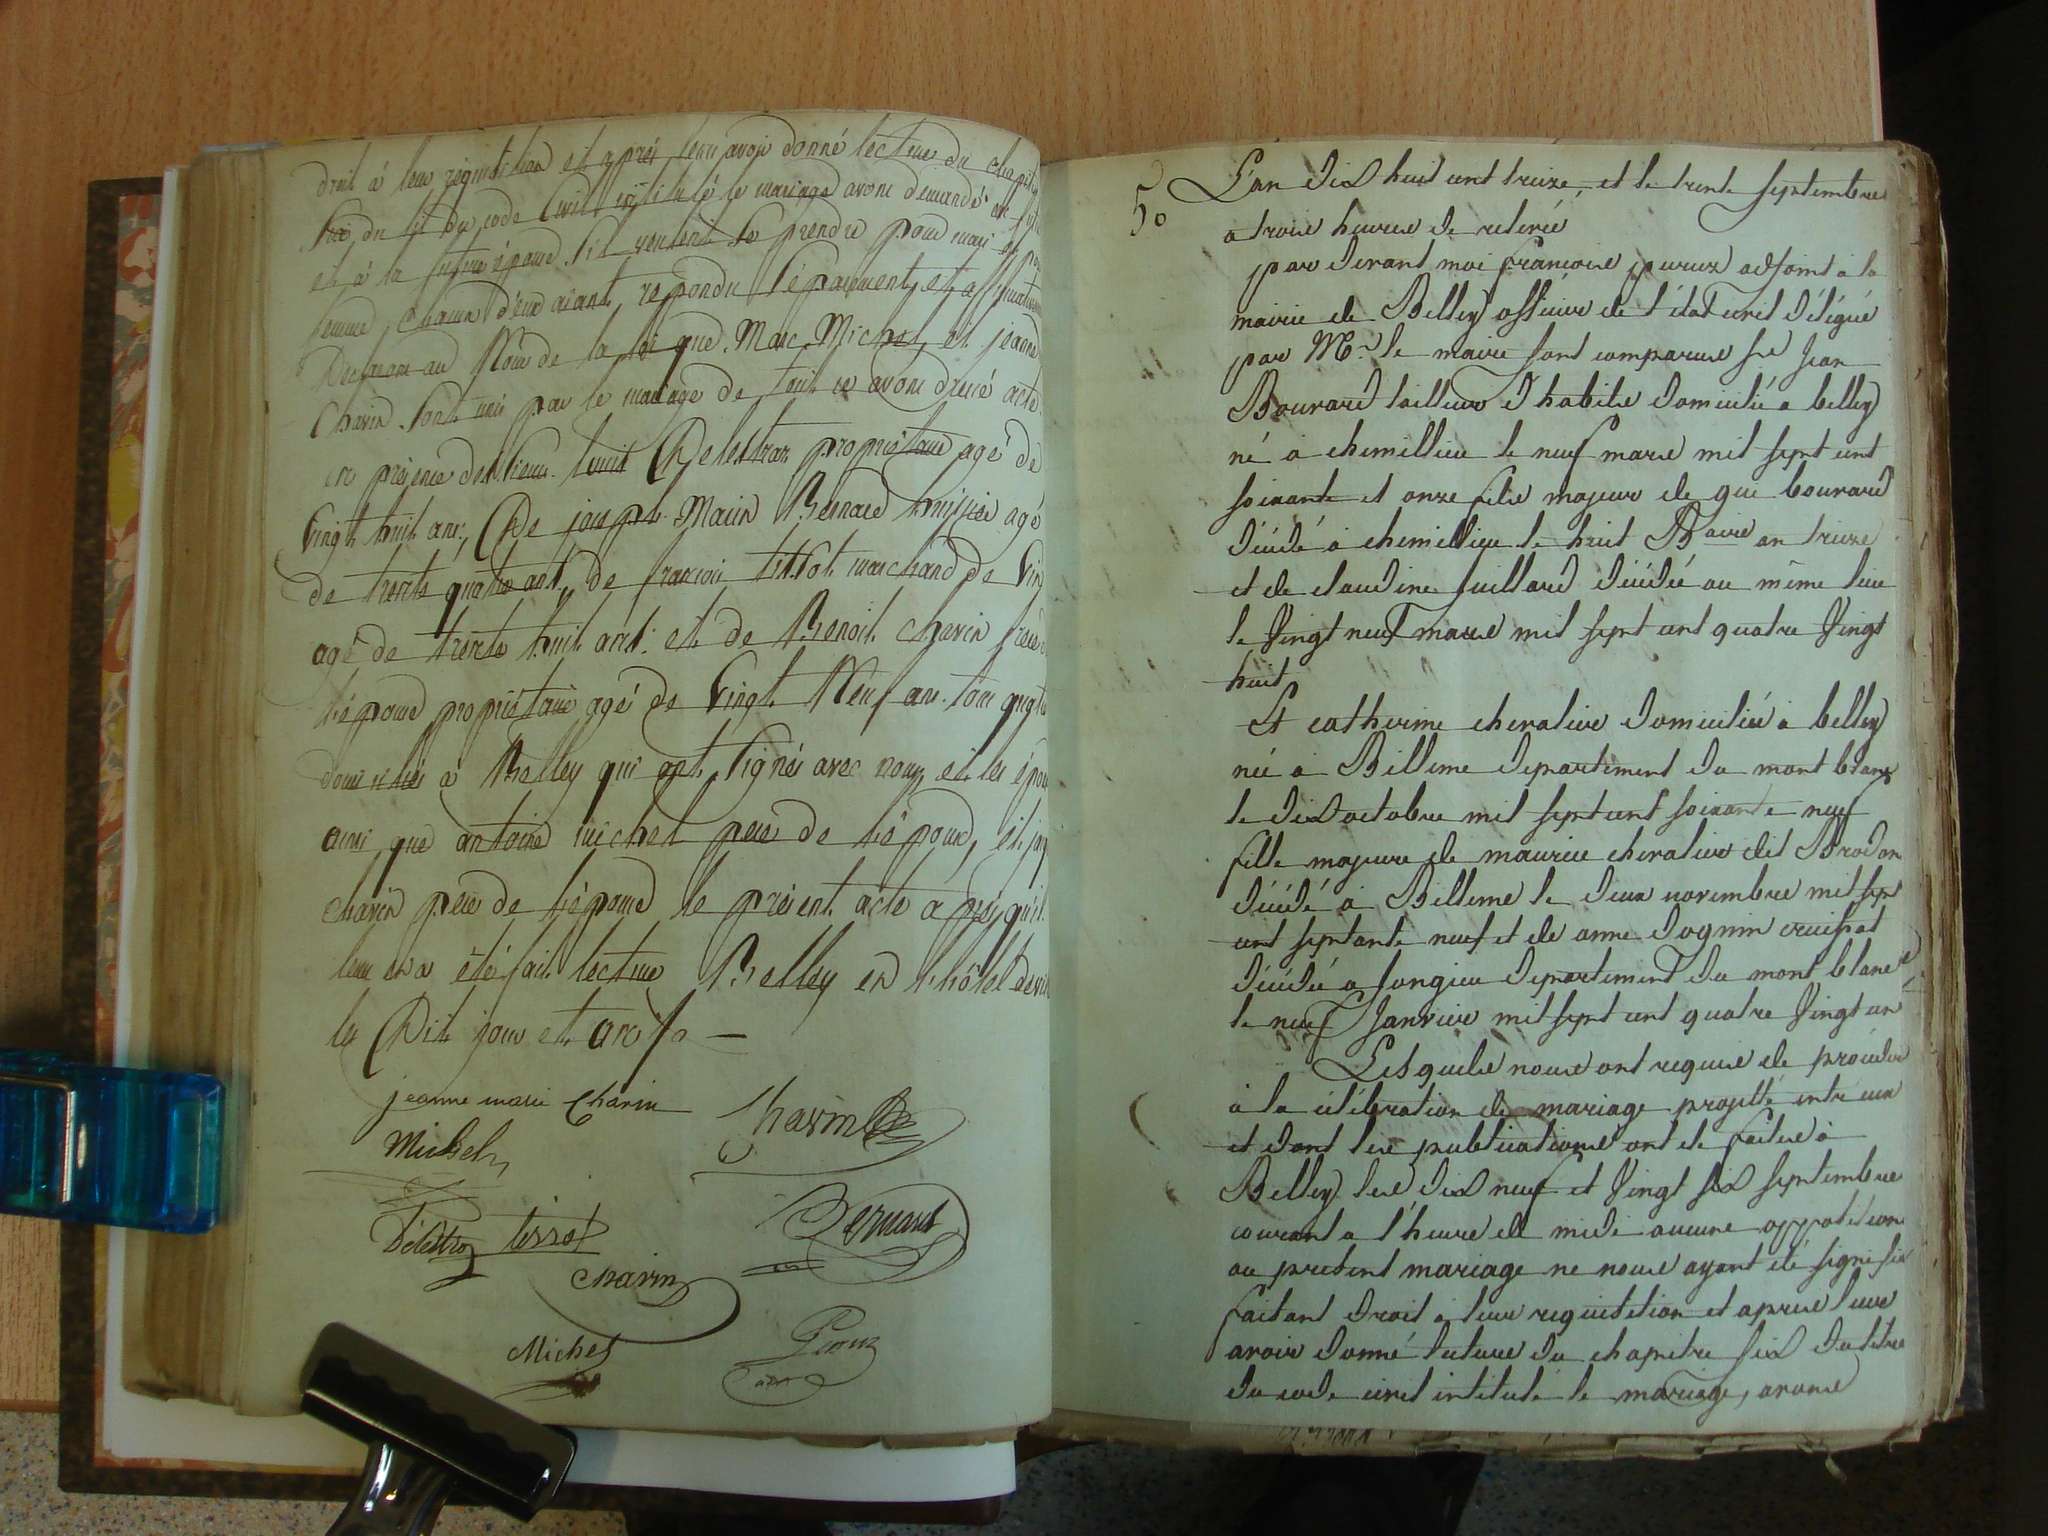 droit à leur réquisition et après leur avoir donné lecture du chapitre
six du tit du code Civil intitulé le mariage avons demandé au futur
et à la future épouse s'il veulent se prendre pour mari et pour
femme, chacun d'eux aiant répondu séparément et affirmativem
Declarons au Nom de la loi que Marc Michel et jeanne
Chavin sont unis par le mariage de tout ce avons dressé acte
en présence des sieurs louis Delestraz propriétaire agé de
vingt huit ans, De joseph Marin Bernard huissier agé
de trente quatre ans, de françois tissot marchand de vin
agé de trente huit ans et de Benoit chavin frere d
l'épouse propriétaire agé de vingt Neuf ans tous quatre
domiciliés à Belley qui ont signés avec nous et les épou
ainsi que antoine michel pere de l'époux, et
chavin pere de l'épouse le présent acte après qu'il
leur en a été fait lecture Belley en l'hôtel de vil
les Dit jour et an
jeanne marie Chavin Chavin
Michel
Delestraz tissot Bernard
chavin
Michel Peroux
adt
50 L'an dix huit cent treize, et le trente septembre
a trois heures de relevée
par devant moi françois peroux adjoint à la
mairie de Belley officier de l'état civil délégué
par Mr. le maire sont comparus sr jean
Bouvard tailleur d'habits domicilié a belley
né a chemillieu le neuf mars mil sept cent
soixante et onze fils majeur de gui bouvard
décédé a chemillieu le huit Baire an treize
et de claudine juillard décédée au même lieu
le vingt neuf mars mil sept cent quatre vingt
huit
Et catherine chevalier domiciliée a belley
née a Billieme departement du mont blanc
le dix octobre mil sept cent soixante neuf
fille majeure de maurice chevalier dit Brodon
décédé a Billieme le deux novembre mil sept
cent septante neuf et de anne dognin
décédée a jongieu departement du mont blanc
le neuf Janvier mil sept cent quatre vingt un
Lesquels nous ont requis de procéder
à la célébration de mariage projetté entre eux
et dont les publications ont été faites à
Belley les dix neuf et vingt six septembre
courant a l'heure de midi aucune opposition
au présent mariage ne nous ayant été signifiée
faisant droit a leur requisition et apres leur
avoir donné lecture du chapitre six du titre
du code civil intitulé le mariage, avons